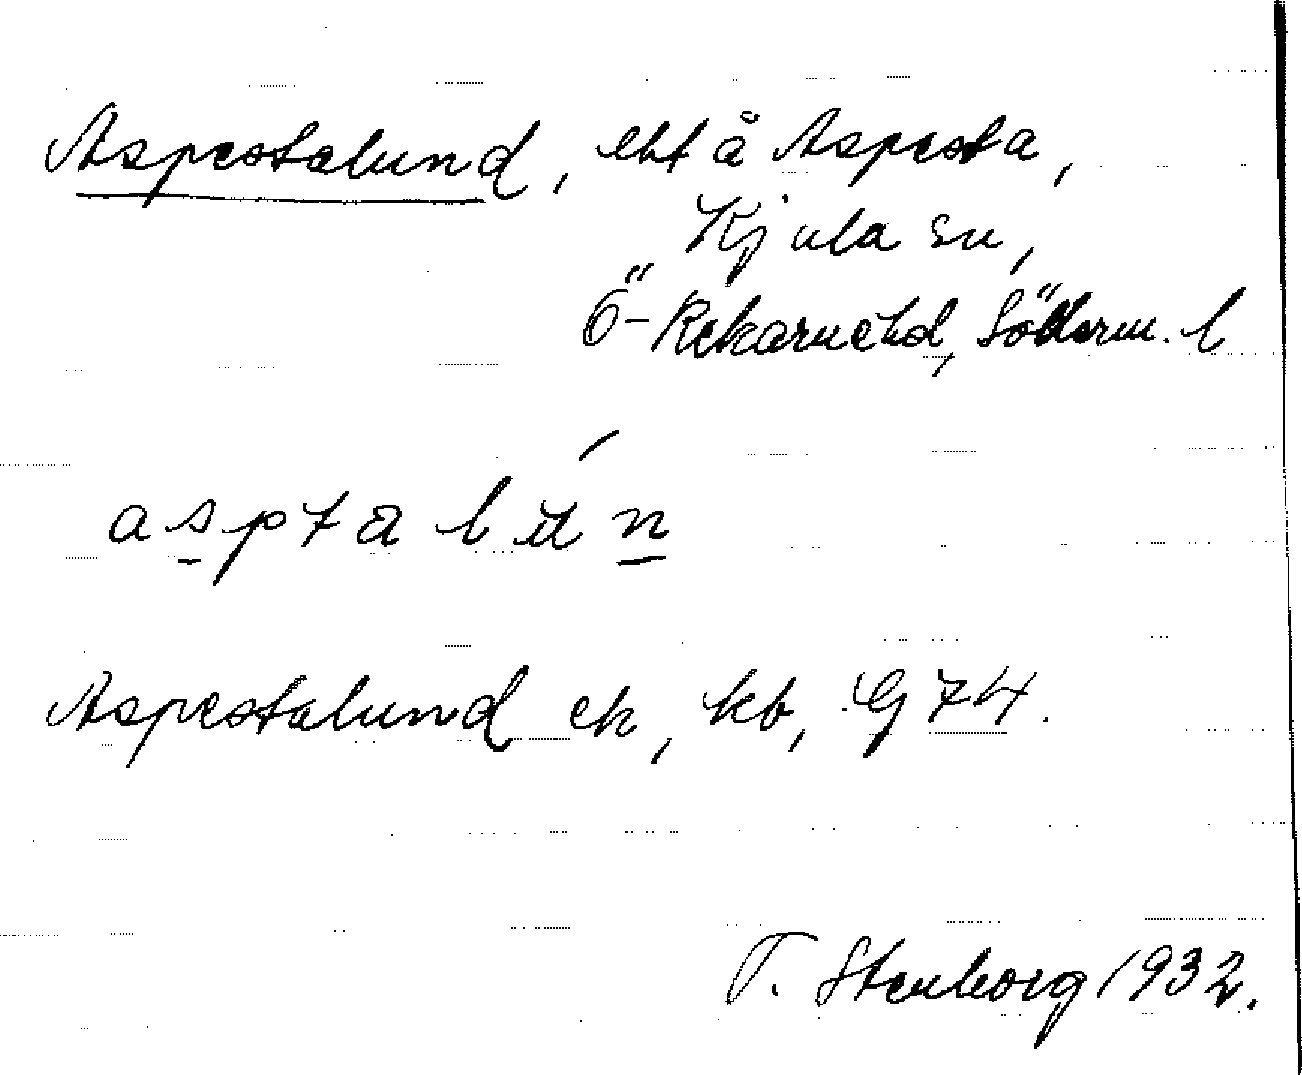 Aspestalund, lht å Aspesta,
Kjula sn,
Ö-Rekarnehd, Söderm. l
Aspestalund ek, kb, Gj 74.
T. Stenborg 1932.